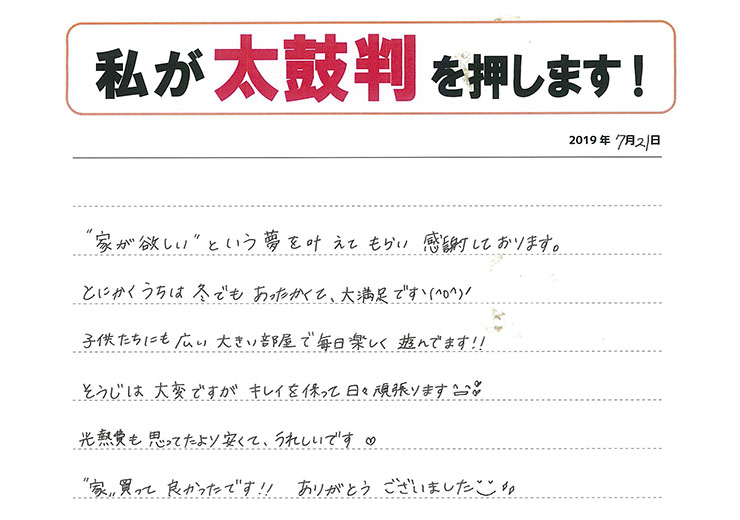 私が太鼓判を押します！
2019年 7月21日
"家が欲しい"という夢を叶えてもらい 感謝しております。
とにかくうちは 冬でも あったかくて、大満足です＼(^o^)／
子供たちにも 広い 大きい部屋で毎日楽しく 遊んでます!!
そうじは 大変ですが キレイを保って日々頑張ります^^
光熱費も 思ってたより安くて、うれしいです♡
"家"買って 良かったです!! ありがとう ございました